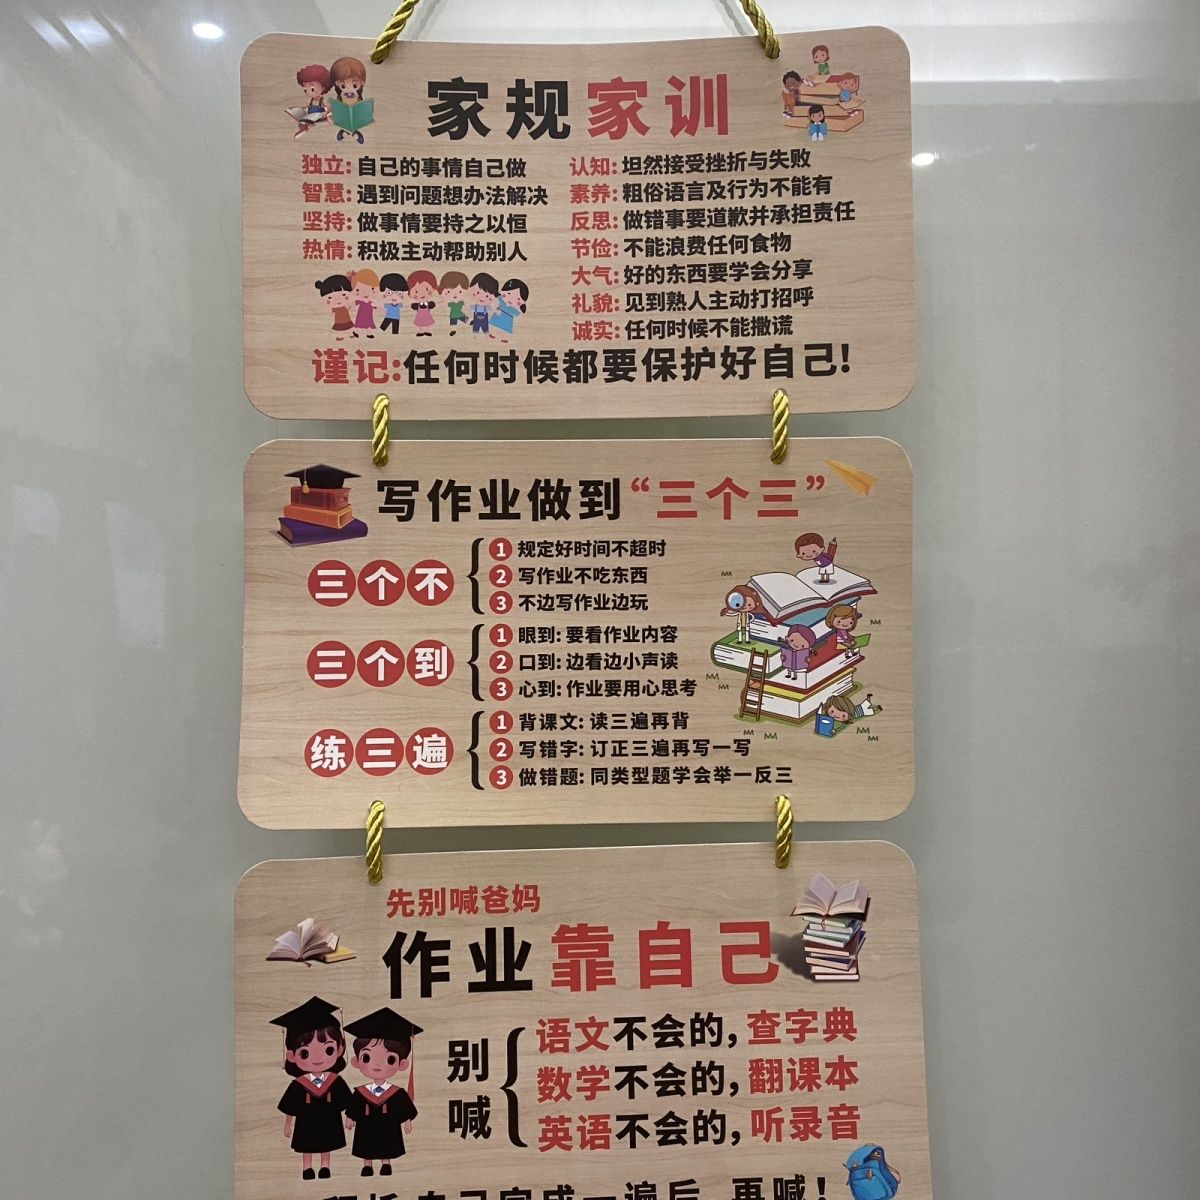 家规家训
独立:自己的事情自己做
智慧:遇到问题想办法解决
坚持:做事情要持之以恒
热情:积极主动帮助别人
认知:坦然接受挫折与失败
素养:粗俗语言及行为不能有
反思:做错事要道歉并承担责任
节俭:不能浪费任何食物
大气:好的东西要学会分享
礼貌:见到熟人主动打招呼
诚实:任何时候不能撒谎
谨记:任何时候都要保护好自己!
写作业做到“三个三”
三个不
1 规定好时间不超时
2 写作业不吃东西
3 不边写作业边玩
三个到
1 眼到:要看作业内容
2 口到:边看边小声读
3 心到:作业要用心思考
练三遍
1 背课文:读三遍再背
2 写错字:订正三遍再写一写
3 做错题:同类型题学会举一反三
先别喊爸妈
作业靠自己
别喊
语文不会的,查字典
数学不会的,翻课本
英语不会的,听录音
自己完成一遍后,再喊!